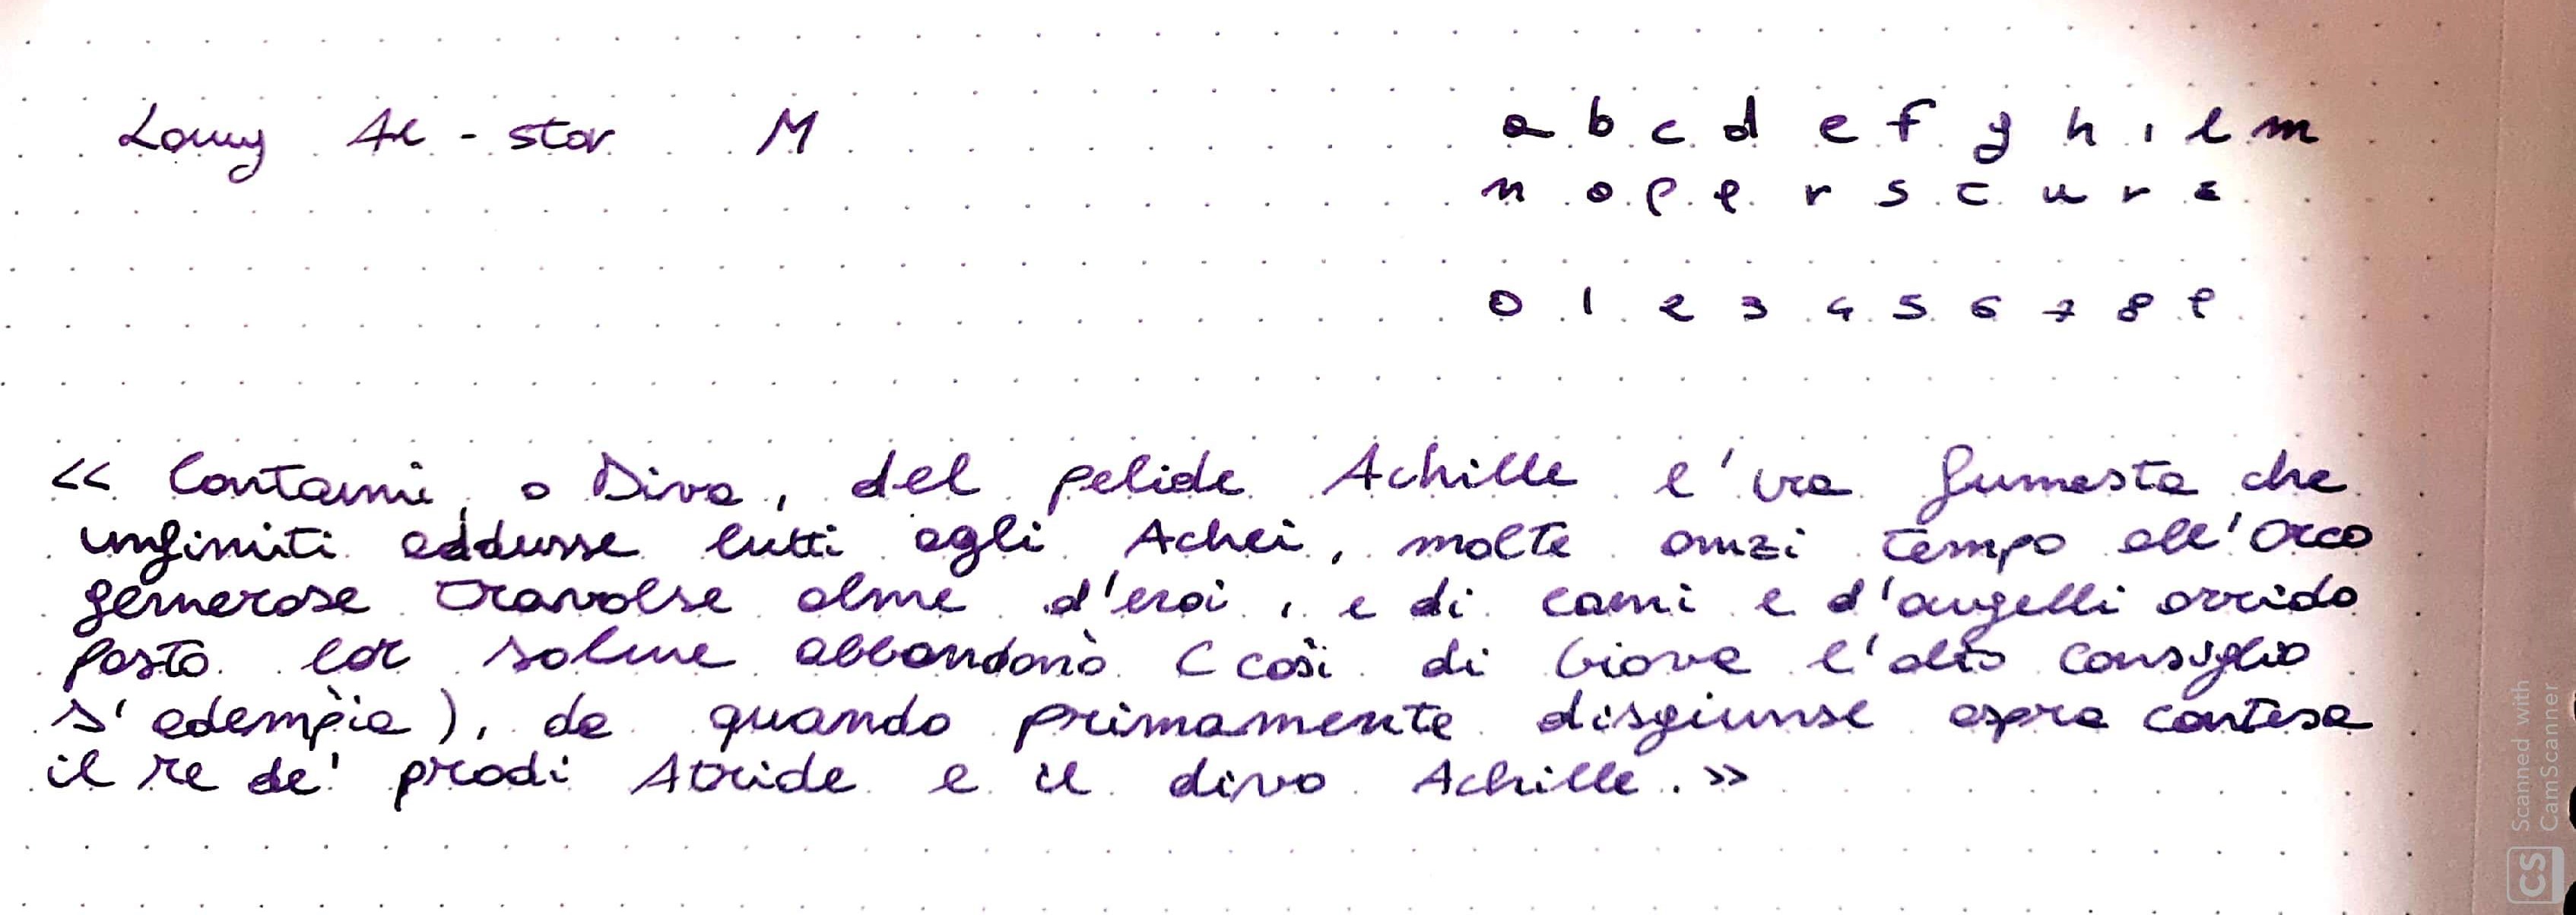 Lamy Al-star M
a b c d e f g h i l m
n o p q r s t u v z
0 1 2 3 4 5 6 7 8 9
<< Cantami, o Diva, del pelide Achille l'ira funesta che
infiniti addusse lutti agli Achei, molte anzi tempo all'Orco
generose travolse alme d'eroi, e di cani e d'augelli orrido
pasto lor salme abbandonò (così di Giove l'alto consiglio
s'adempìa), da quando primamente disgiunse aspra contesa
il re de' prodi Atride e il divo Achille. >>
Scanned with
CamScanner
CS